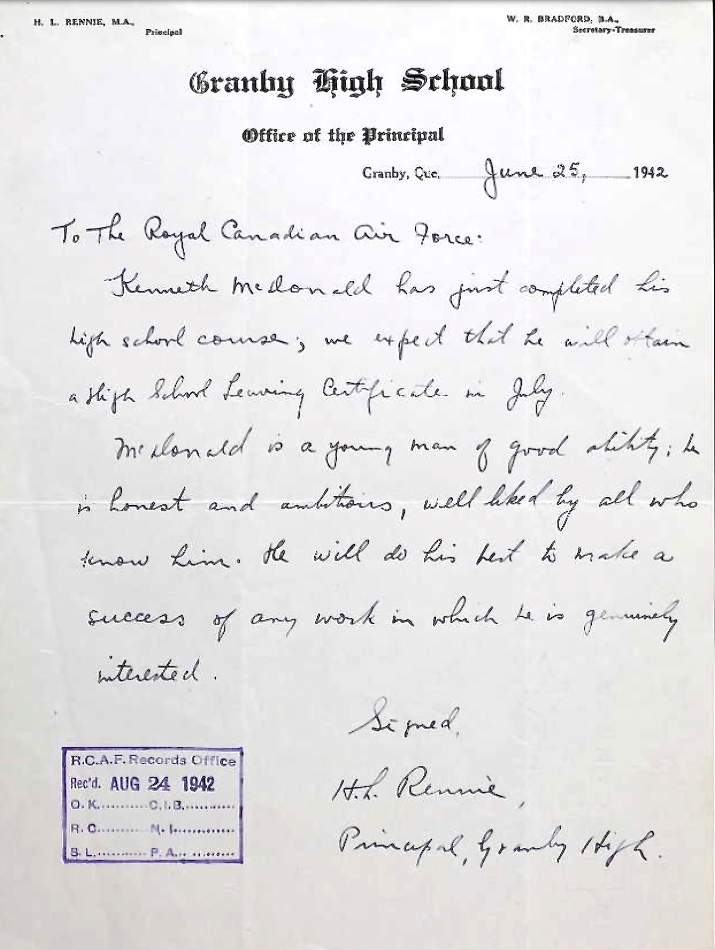 H. L. RENNIE, M.A.,
Principal
W. R. BRADFORD, B.A.,
Secretary-Treasurer
Granby High School
Office of the Principal
Granby, Que. June 25, 1942
To The Royal Canadian Air Force:
Kenneth McDonald has just completed his
high school course; we expect that he will obtain
a High School Leaving Certificate in July.
McDonald is a young man of good ability; he
is honest and ambitious, well liked by all who
know him. He will do his best to make a
success of any work in which he is genuinely
interested.
Signed,
H.L. Rennie,
Principal, Granby High.
R.C.A.F. Records Office
Rec'd. AUG 24 1942
O. K.......... C.I.B............
R. C.......... N. I.............
S. L........... P. A.............